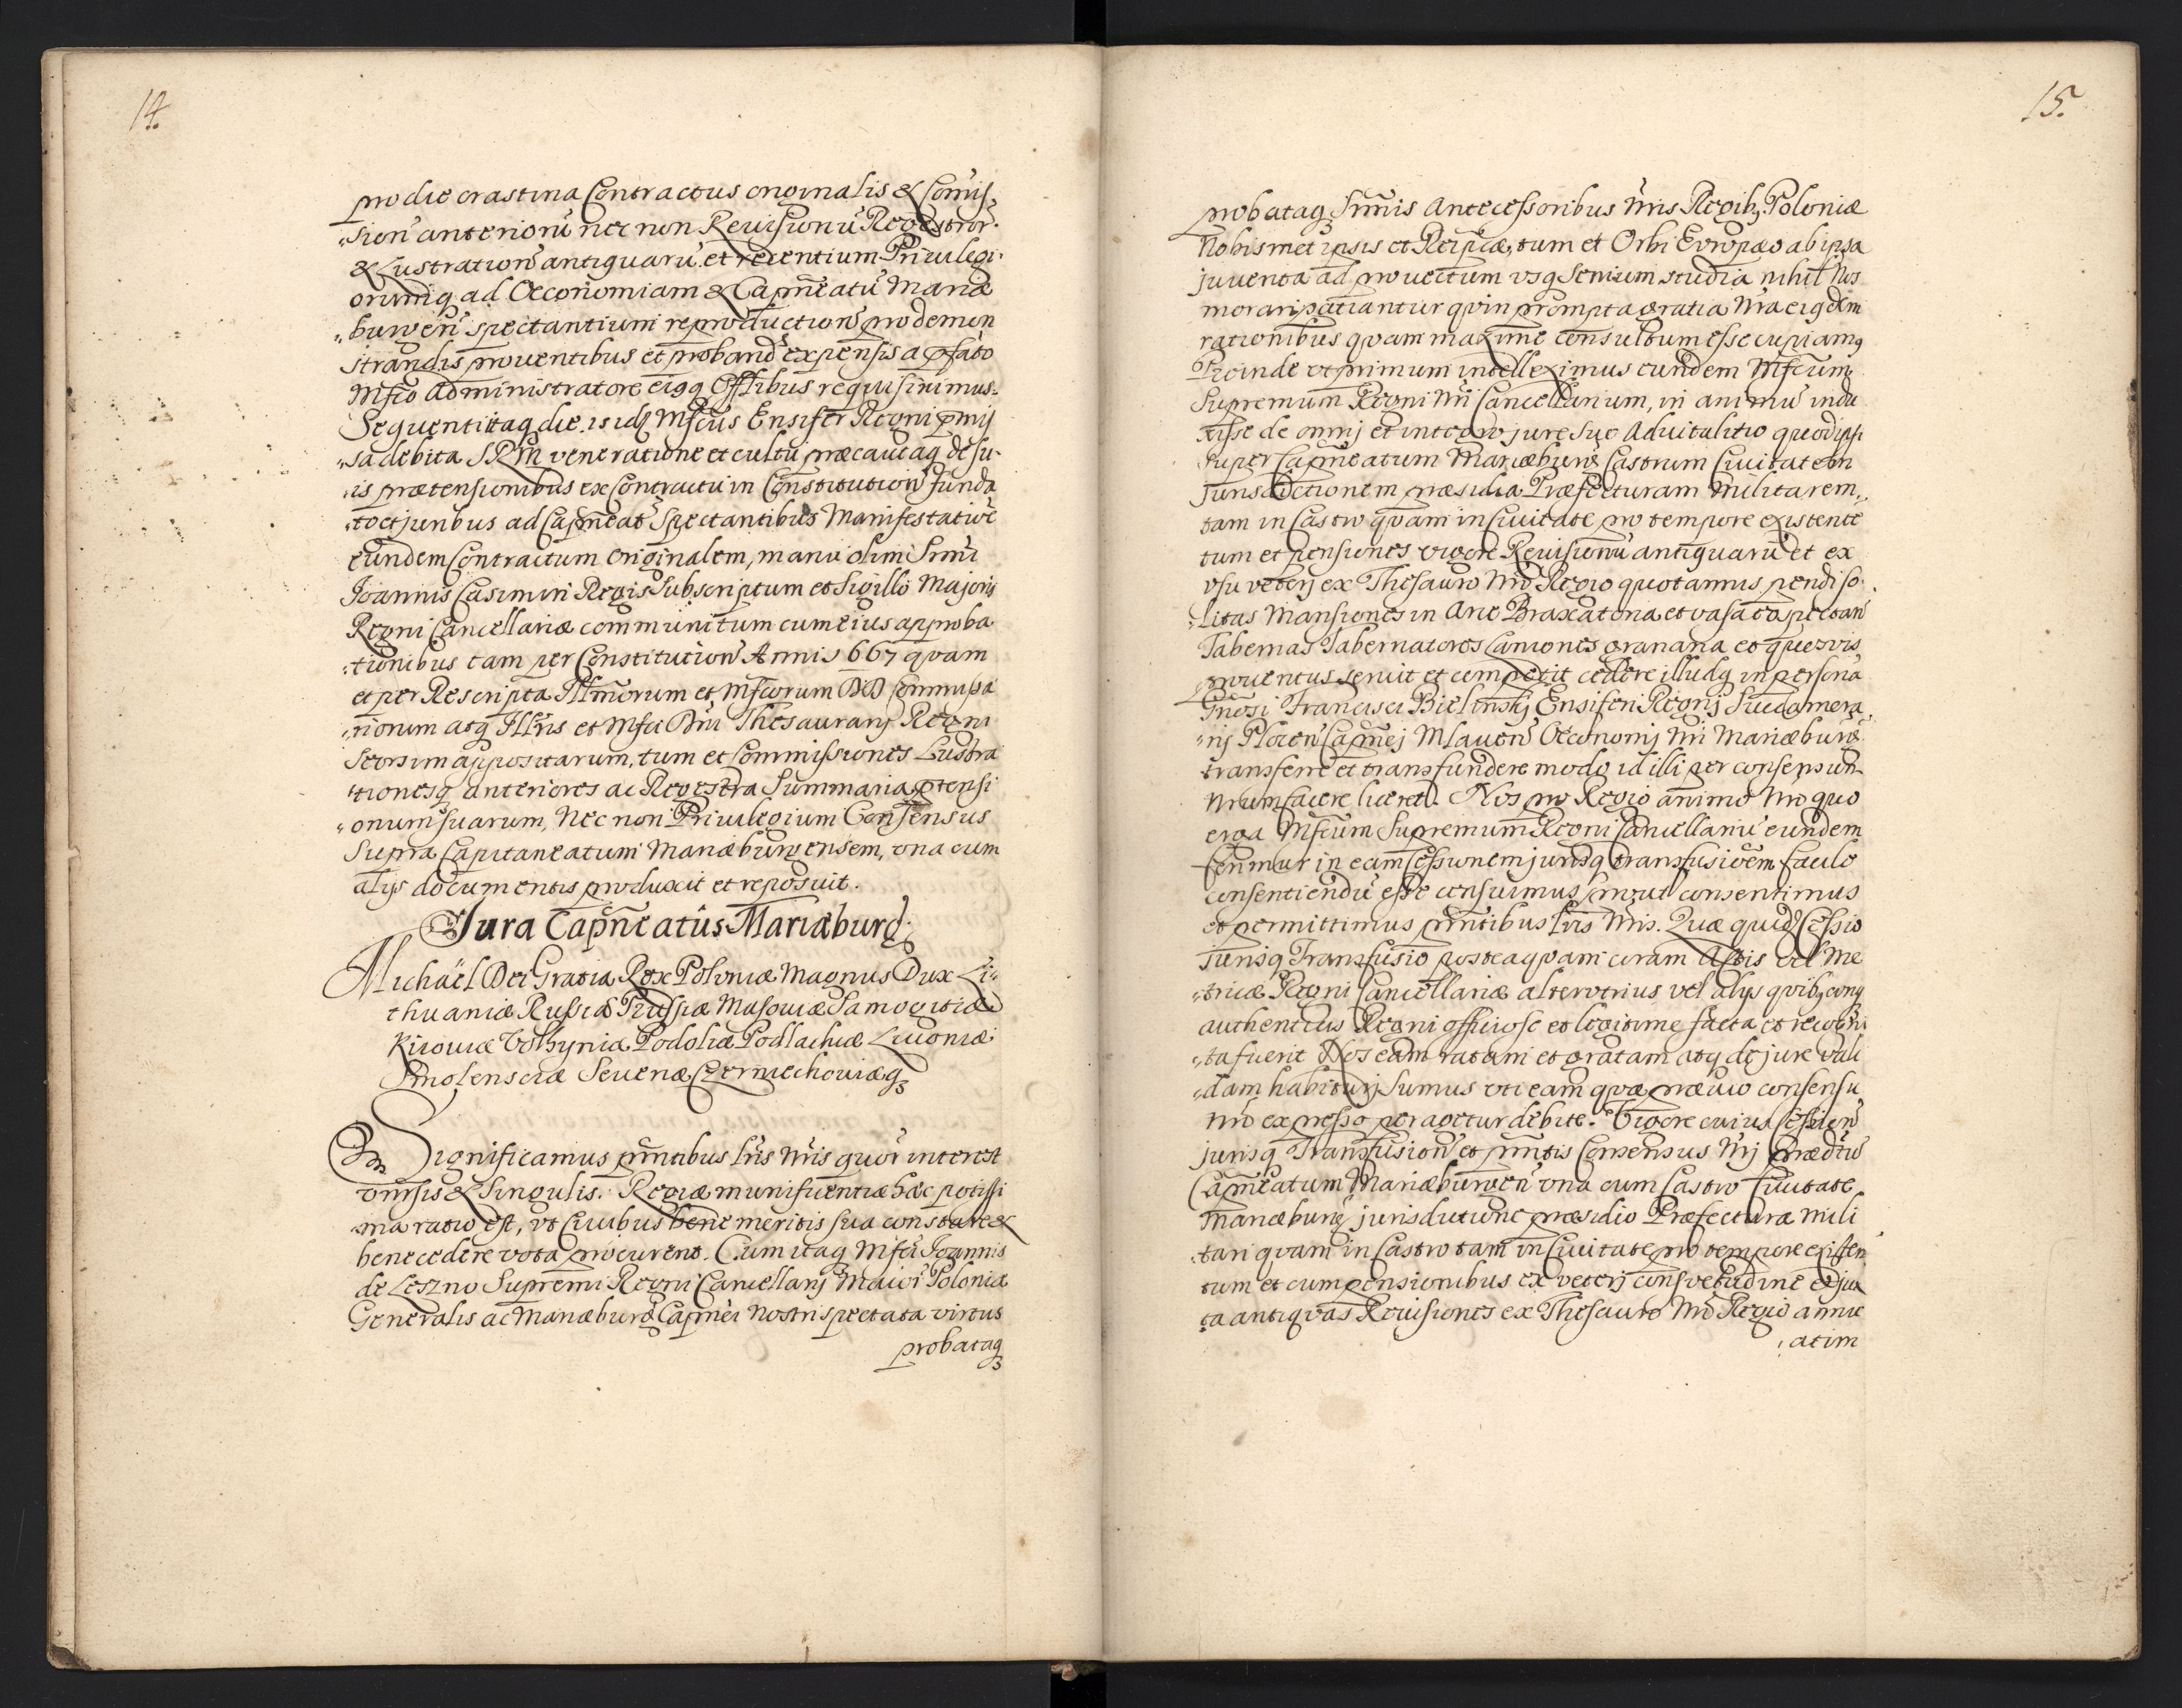 14.
pro die crastina Contractus originalis & Com̃is„
„sion̄ anteriorū nec non Revisionū Regestror̄
& Lustration̄ antiquarū et recentium Privilegi„
orumq ad Oeconomiam & Capn̄eatū Mariæ
„burgen̄ spectantium reproduction̄ pro demon
strandis proventibus et proband̄ expensis a pfato
Mfco Administratore eisqq Offlibus requisivimus.
Sequenti itaq die is idq Mfcus Ensifer Regni pmis
„sa debita SRM veneratione et cultu præcautaq de su„
„is prætensionibus ex Contractu in Constitution̄ funda
„to et juribus ad Capn̄eat̄ Spectantibus Manifestatiōe
eundem Contractum Originalem, manu olim Srmi
Joannis Casimiri Regis Subscriptum et Sigillo Majoris
Regni Cancellariæ communitum cum eius approba
„tionibus tam per Constitution̄ Annis 667 quam
et per Rescripta Illmorum et Mfcorum DD Commissa
„riorum atq Illris et Mfci Dni Thesaurarij Regni
Seorsim appositarum, tum et Commissiones Lustra
„tionesq anteriores ac Regestra Summaria ptensi
„onum suarum, Nec non Privilegium Consensus
Supra Capitaneatum Mariæburgensem, una cum
alijs documentis produxit et reposuit.
Jura Capn̄eatûs Mariæburg:
Michaël Dei Gratia Rex Poloniæ Magnus Dux Li„
thuaniæ Russiæ Prussiæ Masoviæ Samogitiæ
Kijoviæ Volhyniæ Podoliæ Podlachiæ Livoniæ
Smolensciæ Severiæ Czerniechoviæq3
Significamus pntibus Lris Nris quor̄ interest
vnīsis & Singulis. Regiæ munificentiæ hæc potissi
„ma ratio est, vt Civibus bene meritis sua constare &
bene cedere vota procurent. Cum itaq Mfci Joannis
de Leszno Supremi Regni Cancellarij Maioris Poloniæ
Generalis ac Mariæburg Capnei Nostri spectata virtus
probataq3
15.
probataq Srmis Antecessoribus Nris Regib3 Poloniæ
Nobismet ipsis et Reipcæ, tum et Orbi Evropæo ab ipsa
juventa ad provectum vsq Senium studia nihil Nos
morari patiantur qvin prompta gratia Nra eigdem
rationibus qvam maxime consultum esse cupiamq
Proinde vt primum intelleximus eundem Mfcum
Supremum Regni Nri Cancellarium, in animū indu
xisse de omnj et integro jure Suo Advitalitio quod ipsi
Super Capneatum Mariæburg Castrum Civitatem
Jurisdictionem præsidia Præfecturam Militarem,
tam in Castro qvam in Civitate pro tempore existente
tum et pensiones vigore Revisionū antiquarū et ex
vsu veterj ex Thesauro Nro Regio quotannis pendi so„
„litas Mansiones in Arce Braxatoria et vasa eo spectan̄
Tabernas Tabernatores Laniones granaria et quosvis
proventus servit et competit cedere illudq in persona
Gn̄osi Francisci Bielinskj Ensiferi Regnj Succamera
„rij Plocen̄ Capn̄ej Mlaven̄ Oeconomj Nri Mariæburg
transferre et transfundere modo id illi per consensum
Nrum facere liceret. Nos pro Regio animo Nro quo
erga Mfcum Supremum Regni Cancellariū eundem
ferimur in eam Cessionem jurisq transfusiōem facile
consentiendū esse censuimus, prout consentimus
et permittimus pntibus Lris Nris. Quæ quid Cessio
Jurisq Transfusio posteaqvam coram Actis vel Me
„tricæ Regni Cancellariæ alterutrius vel alijs qvib3cunq
authenticis Regni officiose et legitime facta et recogni
„ta fuerit Nos eam ratam et gratam atq de jure vali
„dam habituri Sumus vti eam qvæ prævio consensu
Nro expresso peragetur debite. Vigore cuius Cession̄
jurisq Transfusion̄ et pntis Consensus Nrj Prædtus
Capneatum Mariæburgen̄ una cum Castro Civitate
Mariæburg jurisdictione præsidio Præfectura mili
„tari qvam in Castro tam in Civitate pro tempore existen̄
tum et cum pensionibus ex veterj consvetudine et jux
ta antiqvas Revisiones ex Thesauro Nro Regio annu
„atim